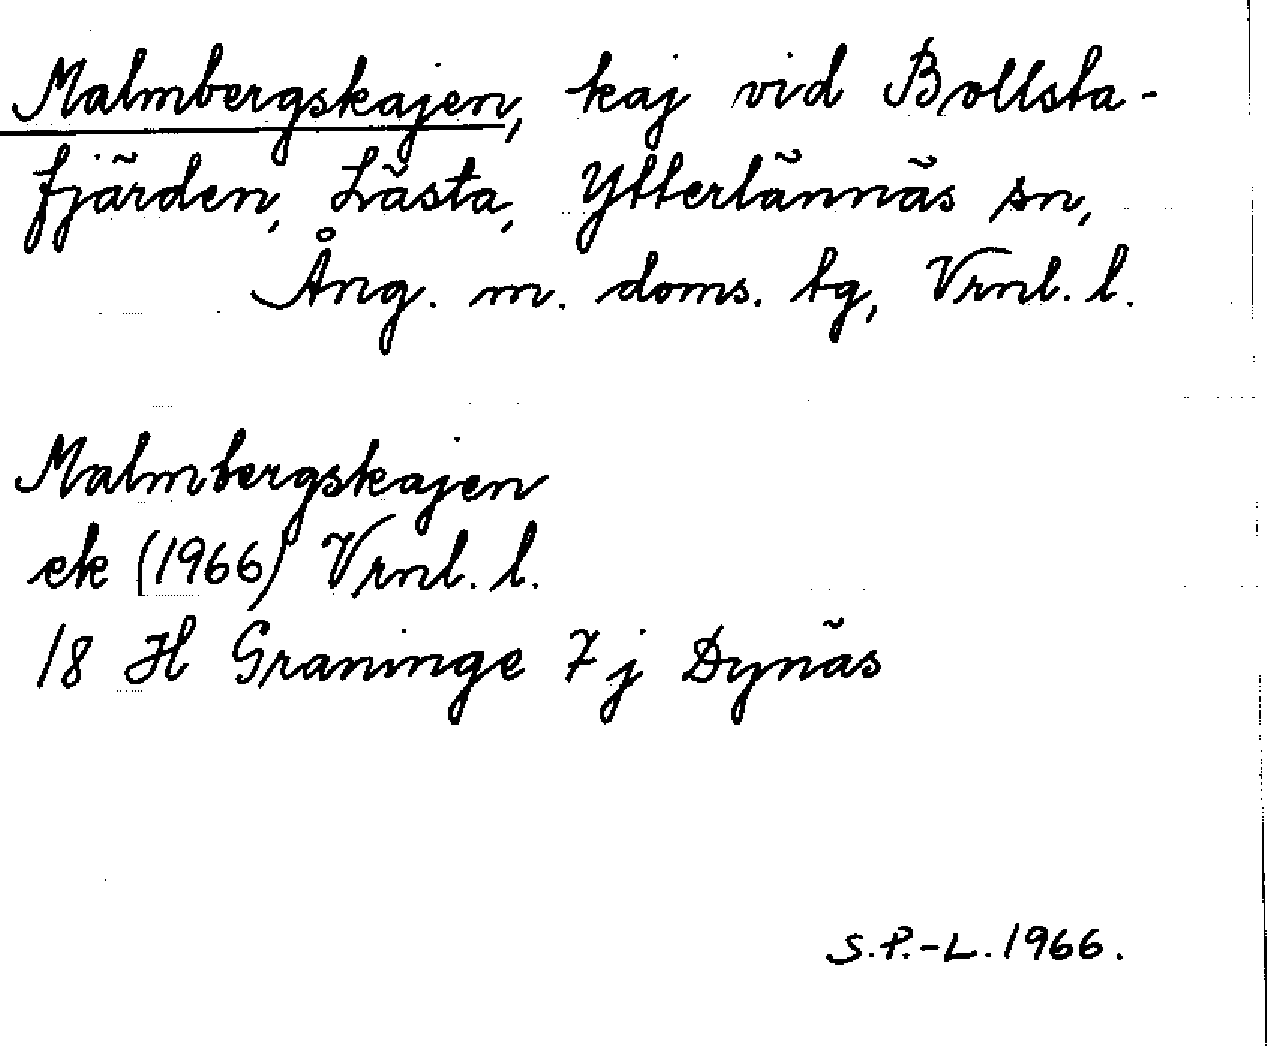 Malmbergskajen, kaj vid Bollsta-
fjärden, Lästa, Ytterlännäs sn,
Ång. m. doms. tg, Vrnl. l.
Malmbergskajen
ek (1966) Vrnl. l.
18 H Graninge 7 j Dynäs
S.P.-L. 1966.